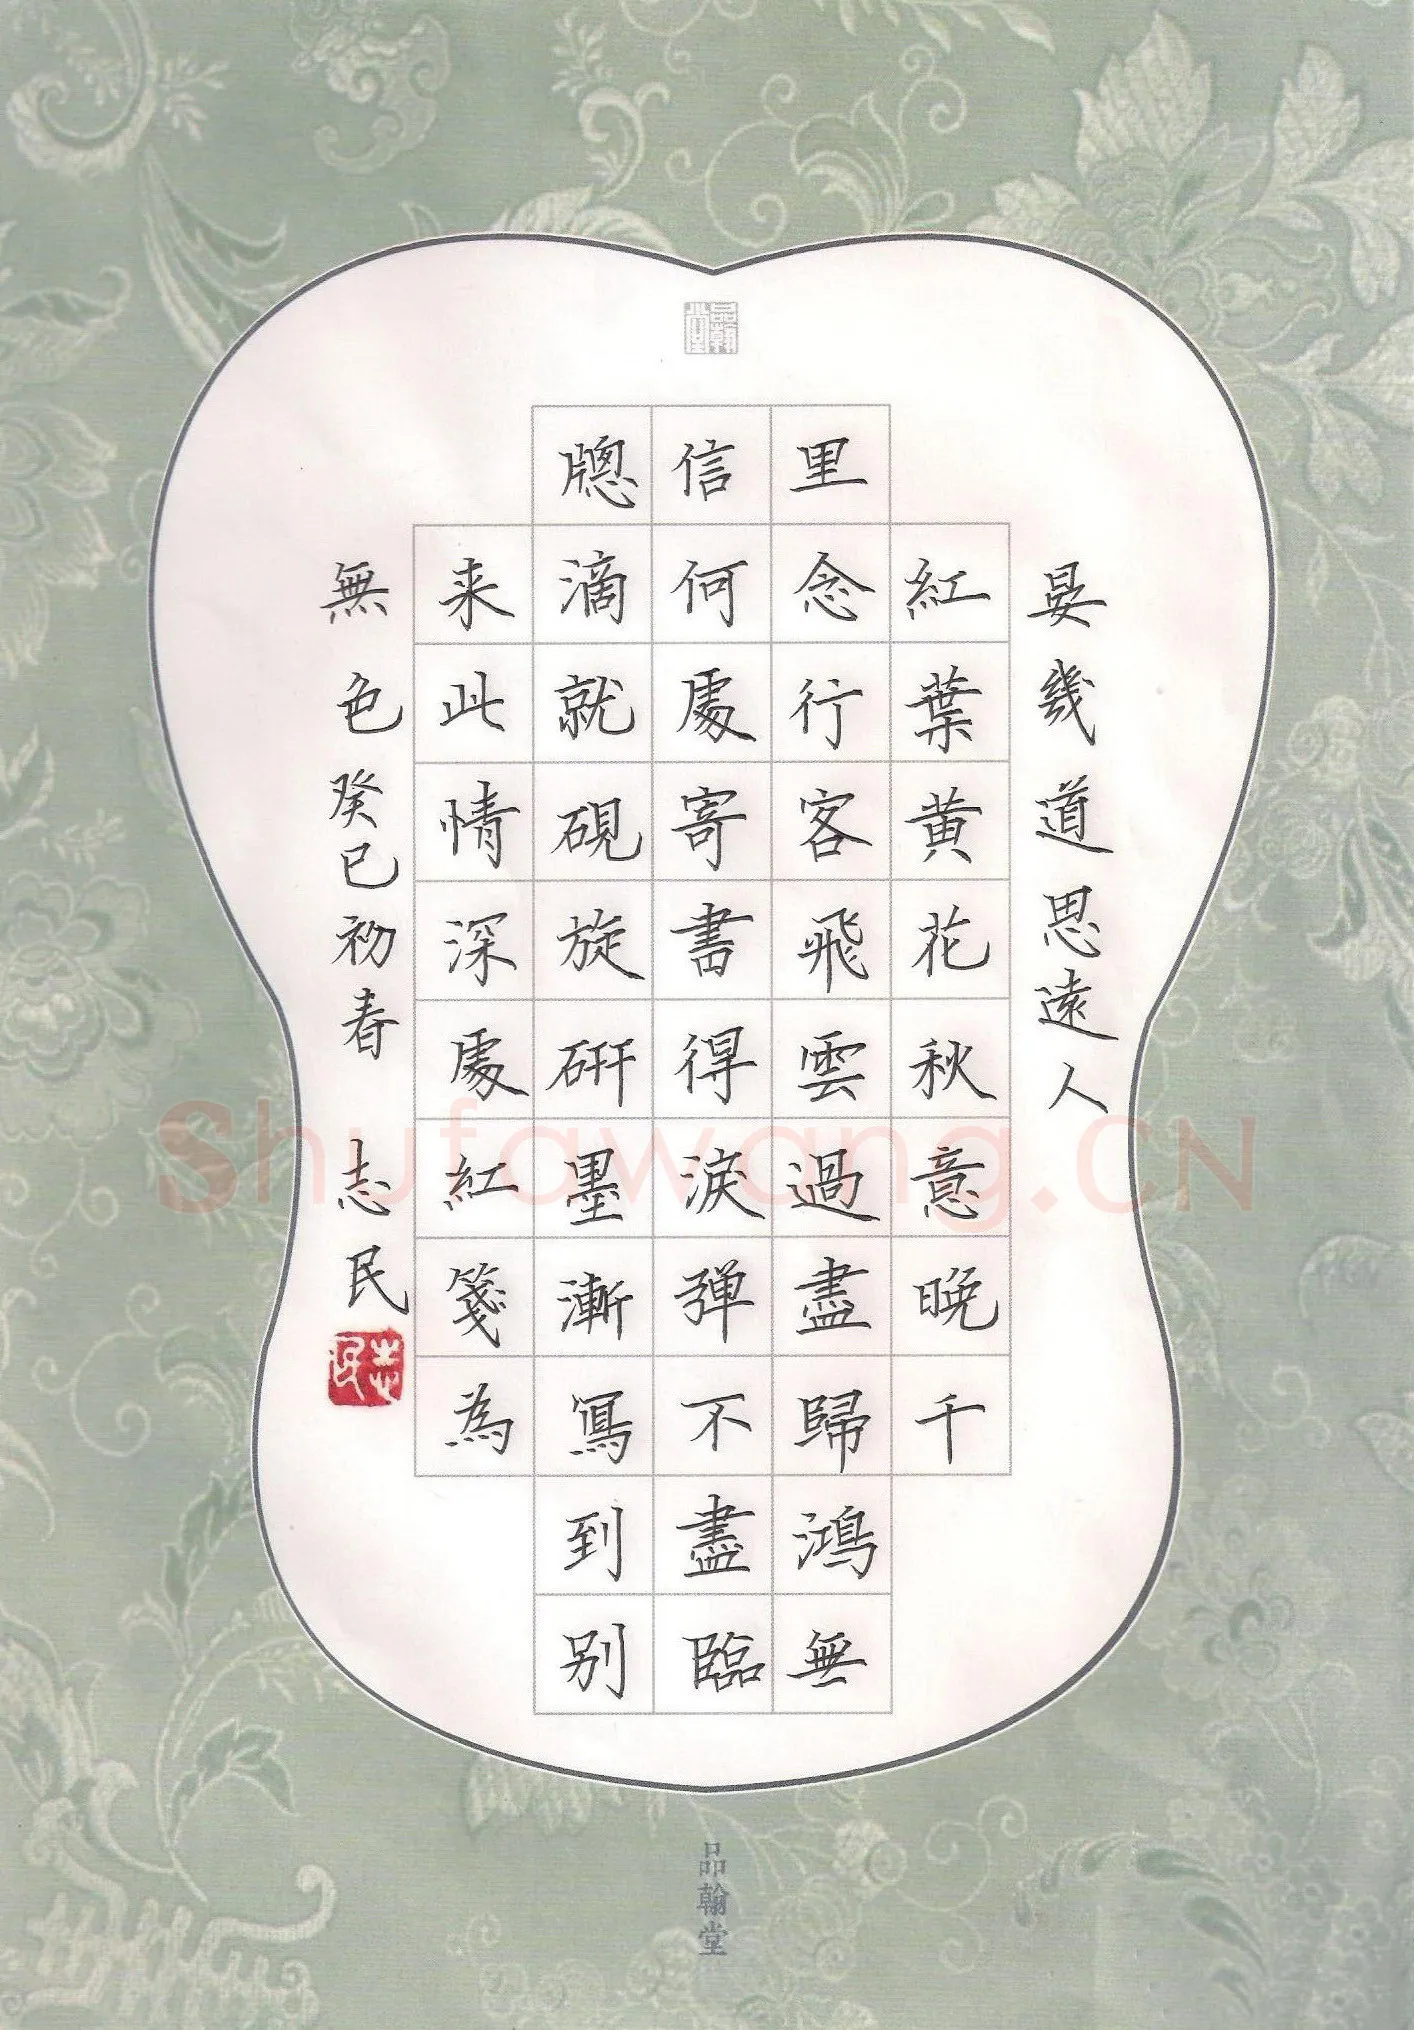 品翰堂
晏幾道思遠人
紅葉黄花秋意晚千
里念行客飛雲過盡歸鴻無
信何處寄書得淚弹不盡臨
牕滴就硯旋硏墨漸寫到别
来此情深處紅箋為
無色癸巳初春 志民
志民
Shufawang.CN
品翰堂